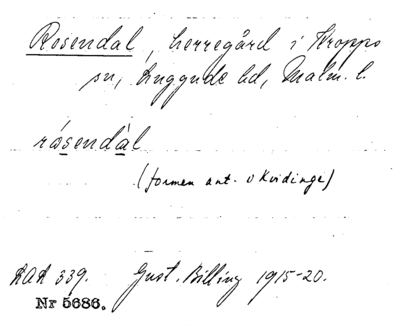 Rosendal, herregård i Kropps
sn, Luggude hd, Malm. l.
rósendàl
(formen ant. v Kvidinge)
DAL 339. Gust. Billing 1915-20.
Nr 5686.